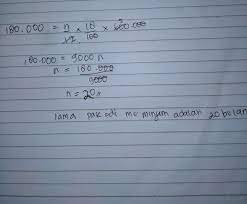 180.000 = n/12 × 18/100 × 600.000
180.000 = 9000 n
n = 180.000/9000
n = 20
lama pak adi me minjam adalah 20 bulan